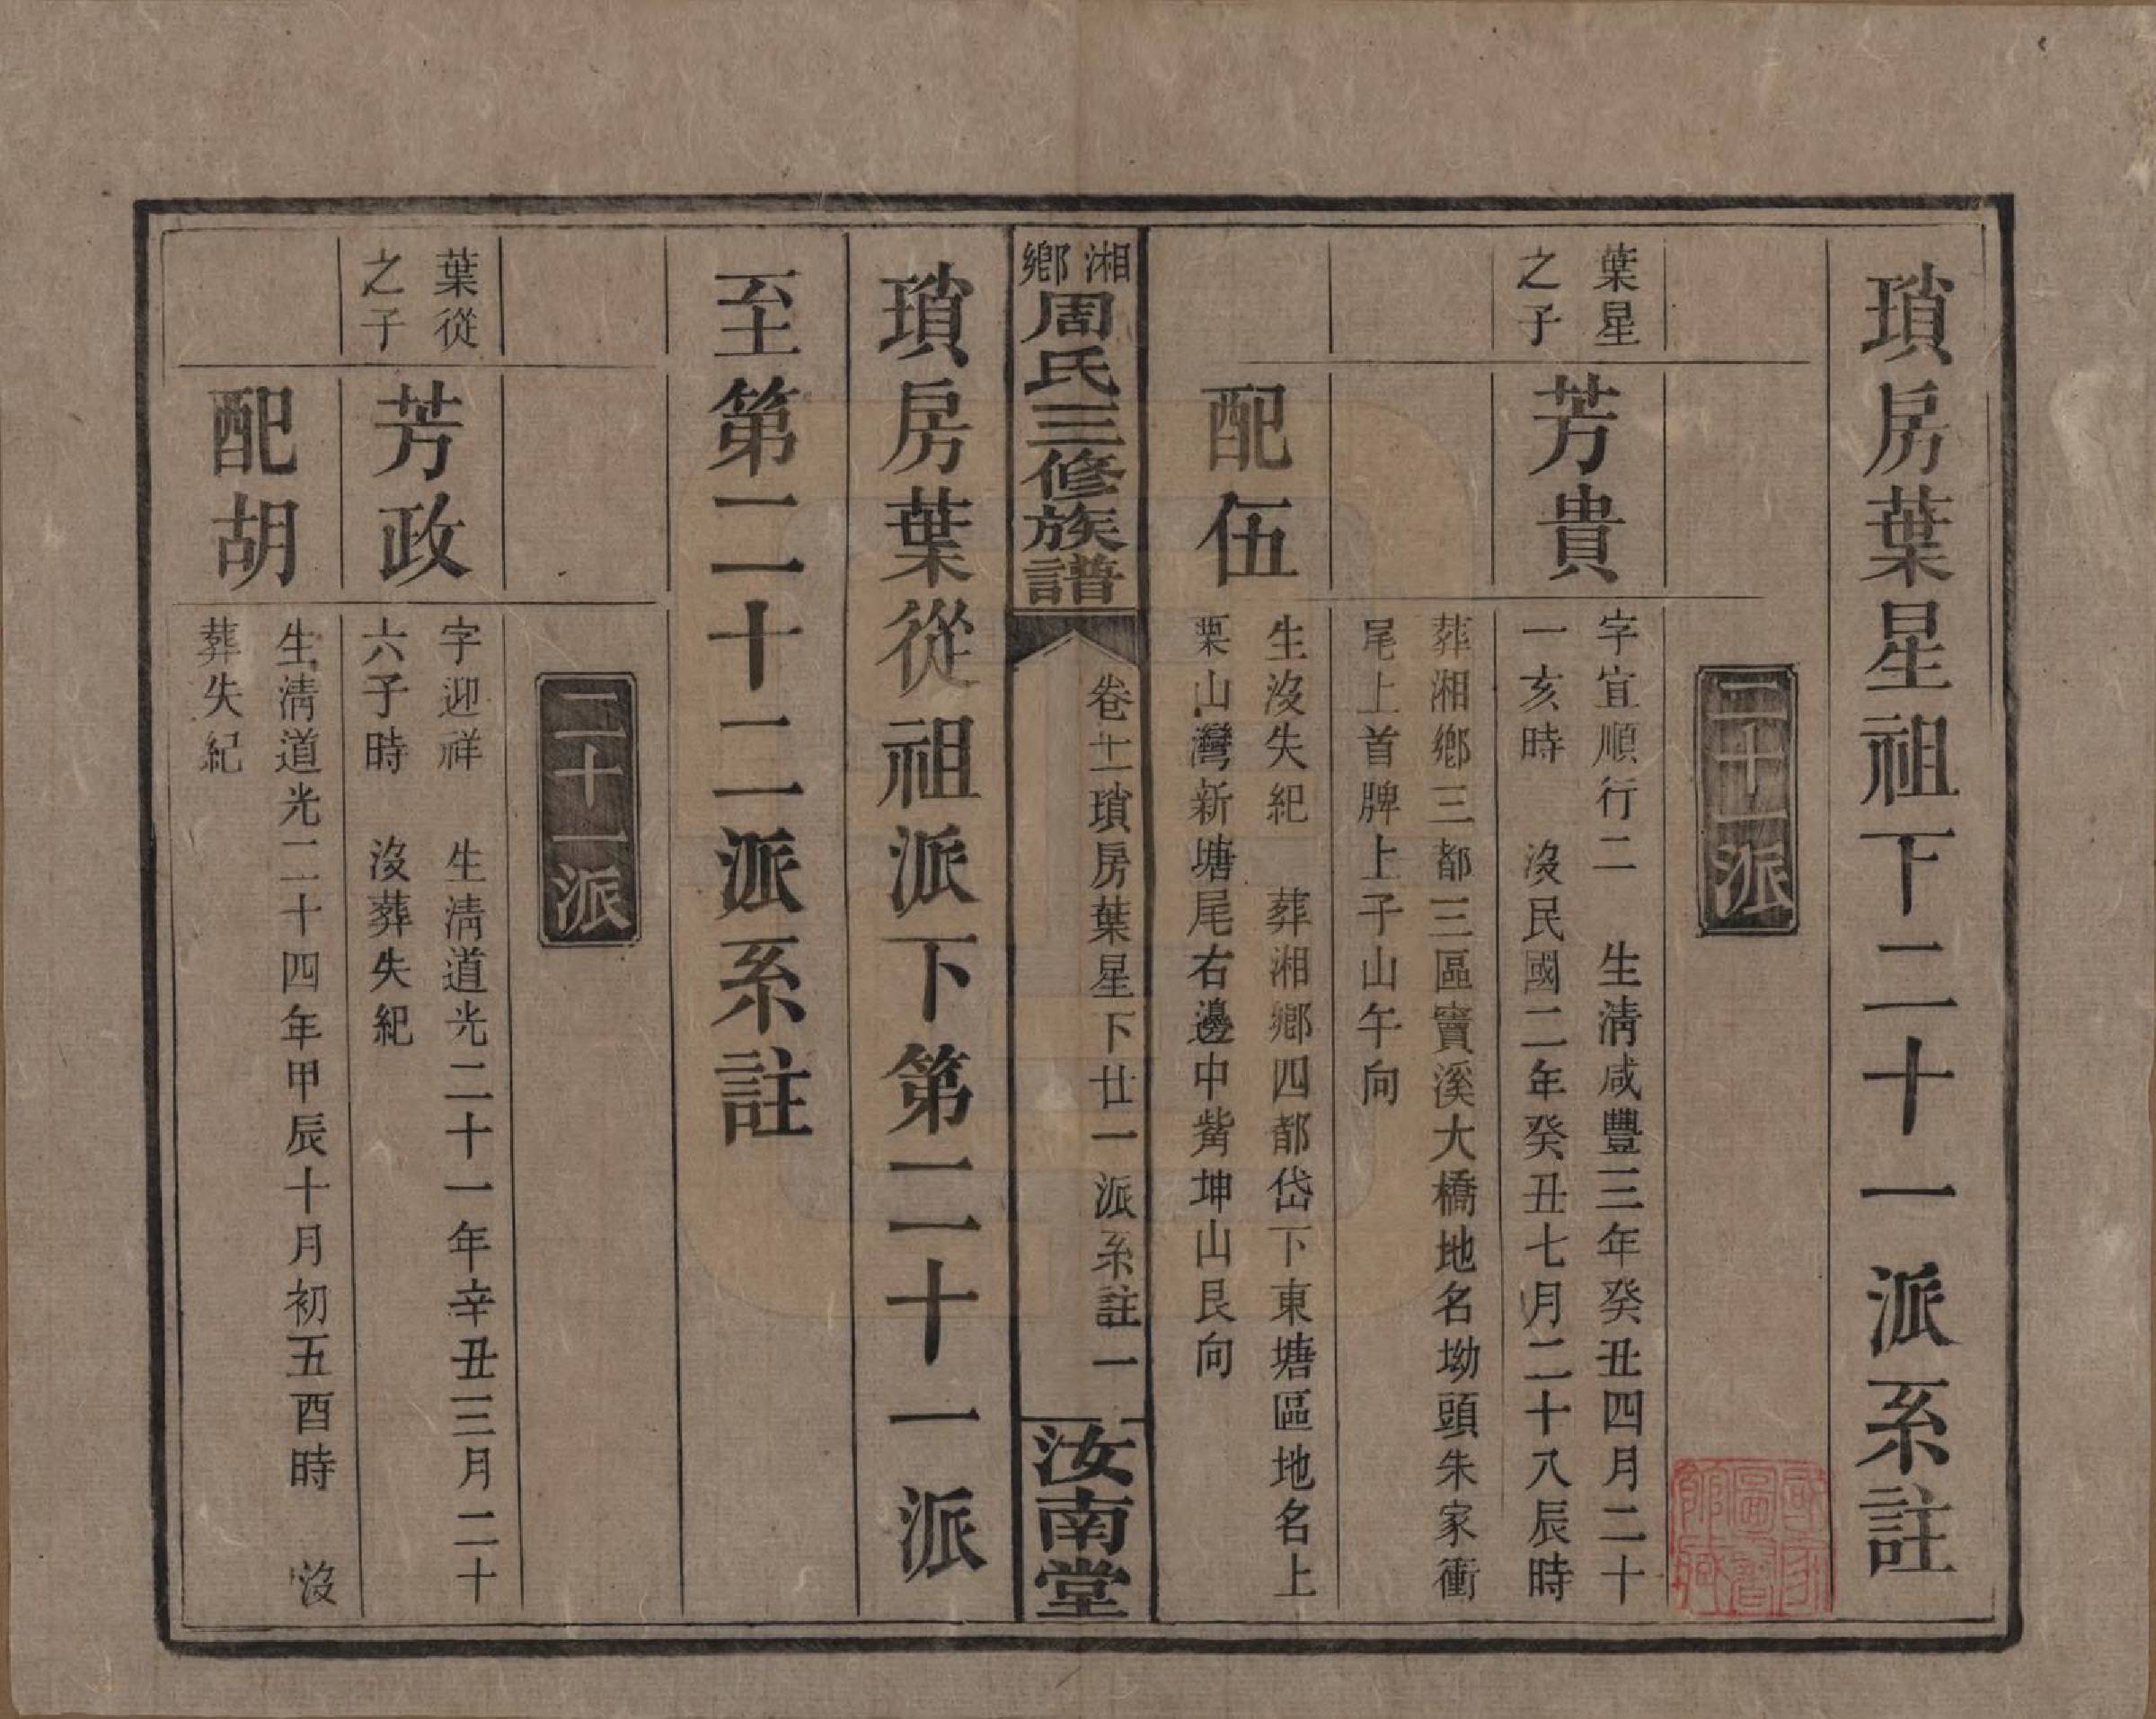 瑣房葉星祖下二十一派系註
二十一派
葉星
之子
芳貴
字宜順行二　生淸咸豐三年癸丑四月二十
一亥時　沒民國二年癸丑七月二十八辰時
葬湘鄉三都三區竇溪大橋地名坳頭朱家衝
尾上首牌上子山午向
配伍
生沒失紀　葬湘鄉四都岱下東塘區地名上
栗山灣新塘尾右邊中觜坤山艮向
湘鄉周氏三修族譜
卷十一瑣房葉星下廿一派系註一
汝南堂
瑣房葉從祖派下第二十一派
至第二十二派系註
二十一派
葉從
之子
芳政
字迎祥　生淸道光二十一年辛丑三月二十
六子時　沒葬失紀
配胡
生淸道光二十四年甲辰十月初五酉時　沒
葬失紀
國家圖書館藏